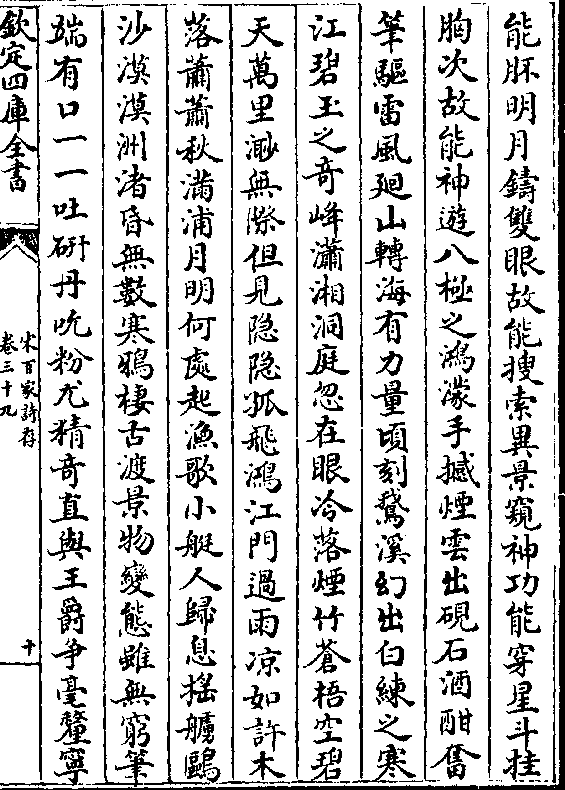 能胚明月鑄雙眼故能搜索異景窺神功能穿星斗挂
胸次故能神遊八極之鴻濛手撼煙雲出硯石酒酣奮
筆驅雷風廻山轉海有力量頃刻鵞溪幻出白練之寒
江碧玉之奇峰瀟湘洞庭忽在眼冷落煙竹蒼梧空碧
天萬里渺無際但見隠隠孤飛鴻江門過雨凉如許木
落蕭蕭秋滿浦月明何處起漁歌小艇人歸息揺艣鷗
沙漠漠洲渚昏無數寒鴉棲古渡景物變態雖無窮筆
端有口一一吐硏丹吮粉尤精奇直與王爵争毫釐寧
欽定四庫全書
宋百家詩存
卷三十九
十